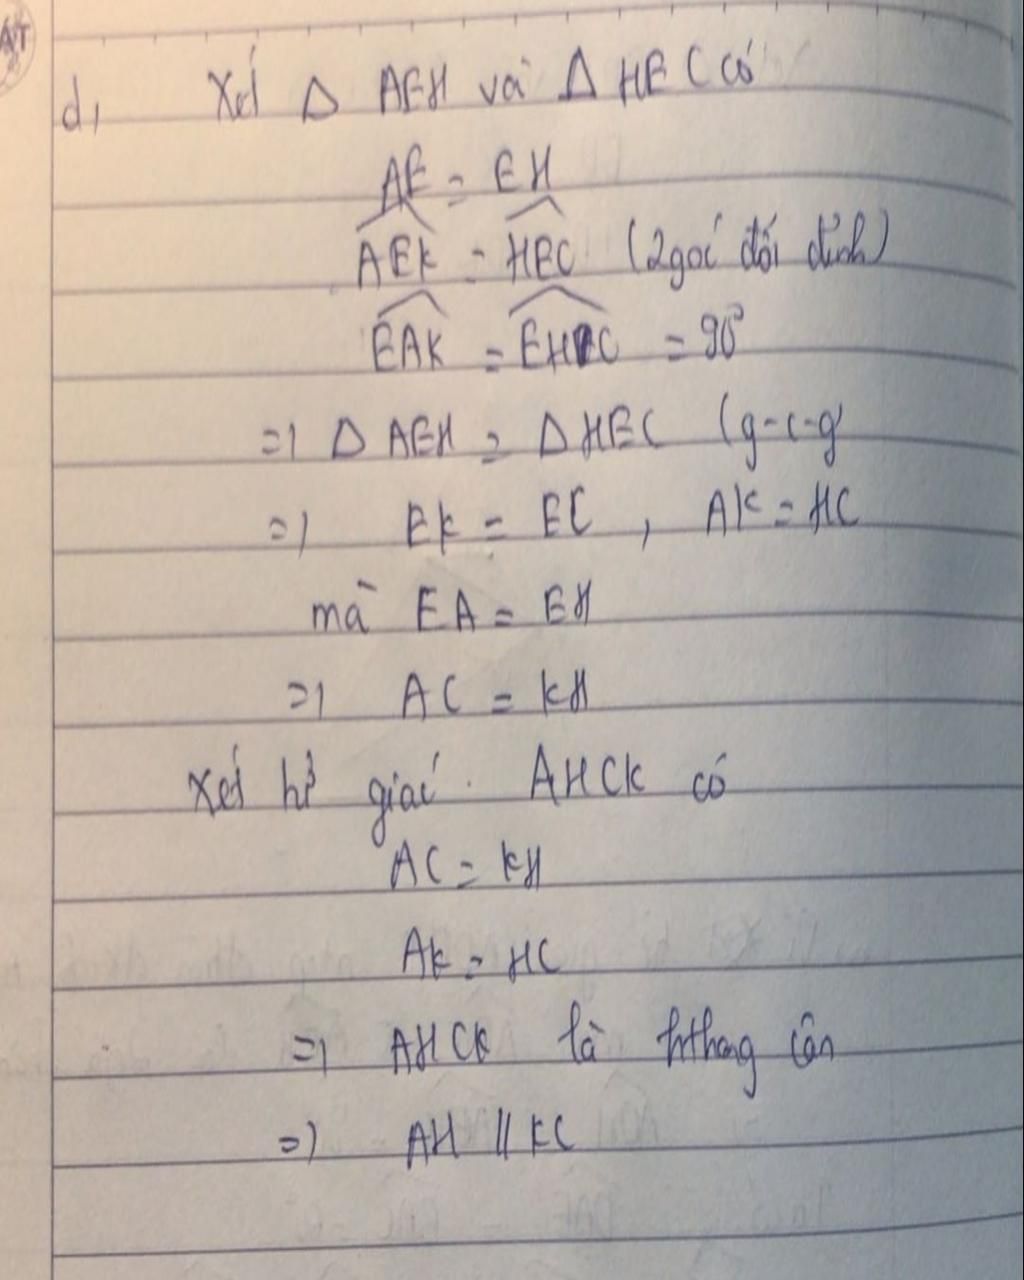 d, Xét Δ AEH và Δ HEC có
AE = EH
AEK = HEC (2 goć đối đỉnh)
EAK = EHC = 90°
=) Δ AEH = Δ HEC (g-c-g
=) EK = EC , AK = HC
mà EA = EH
=) AC = KH
Xét hỉ giać. AHCK có
AC = KH
AK = HC
=) AHCK là hthang cân
=) AH // KC